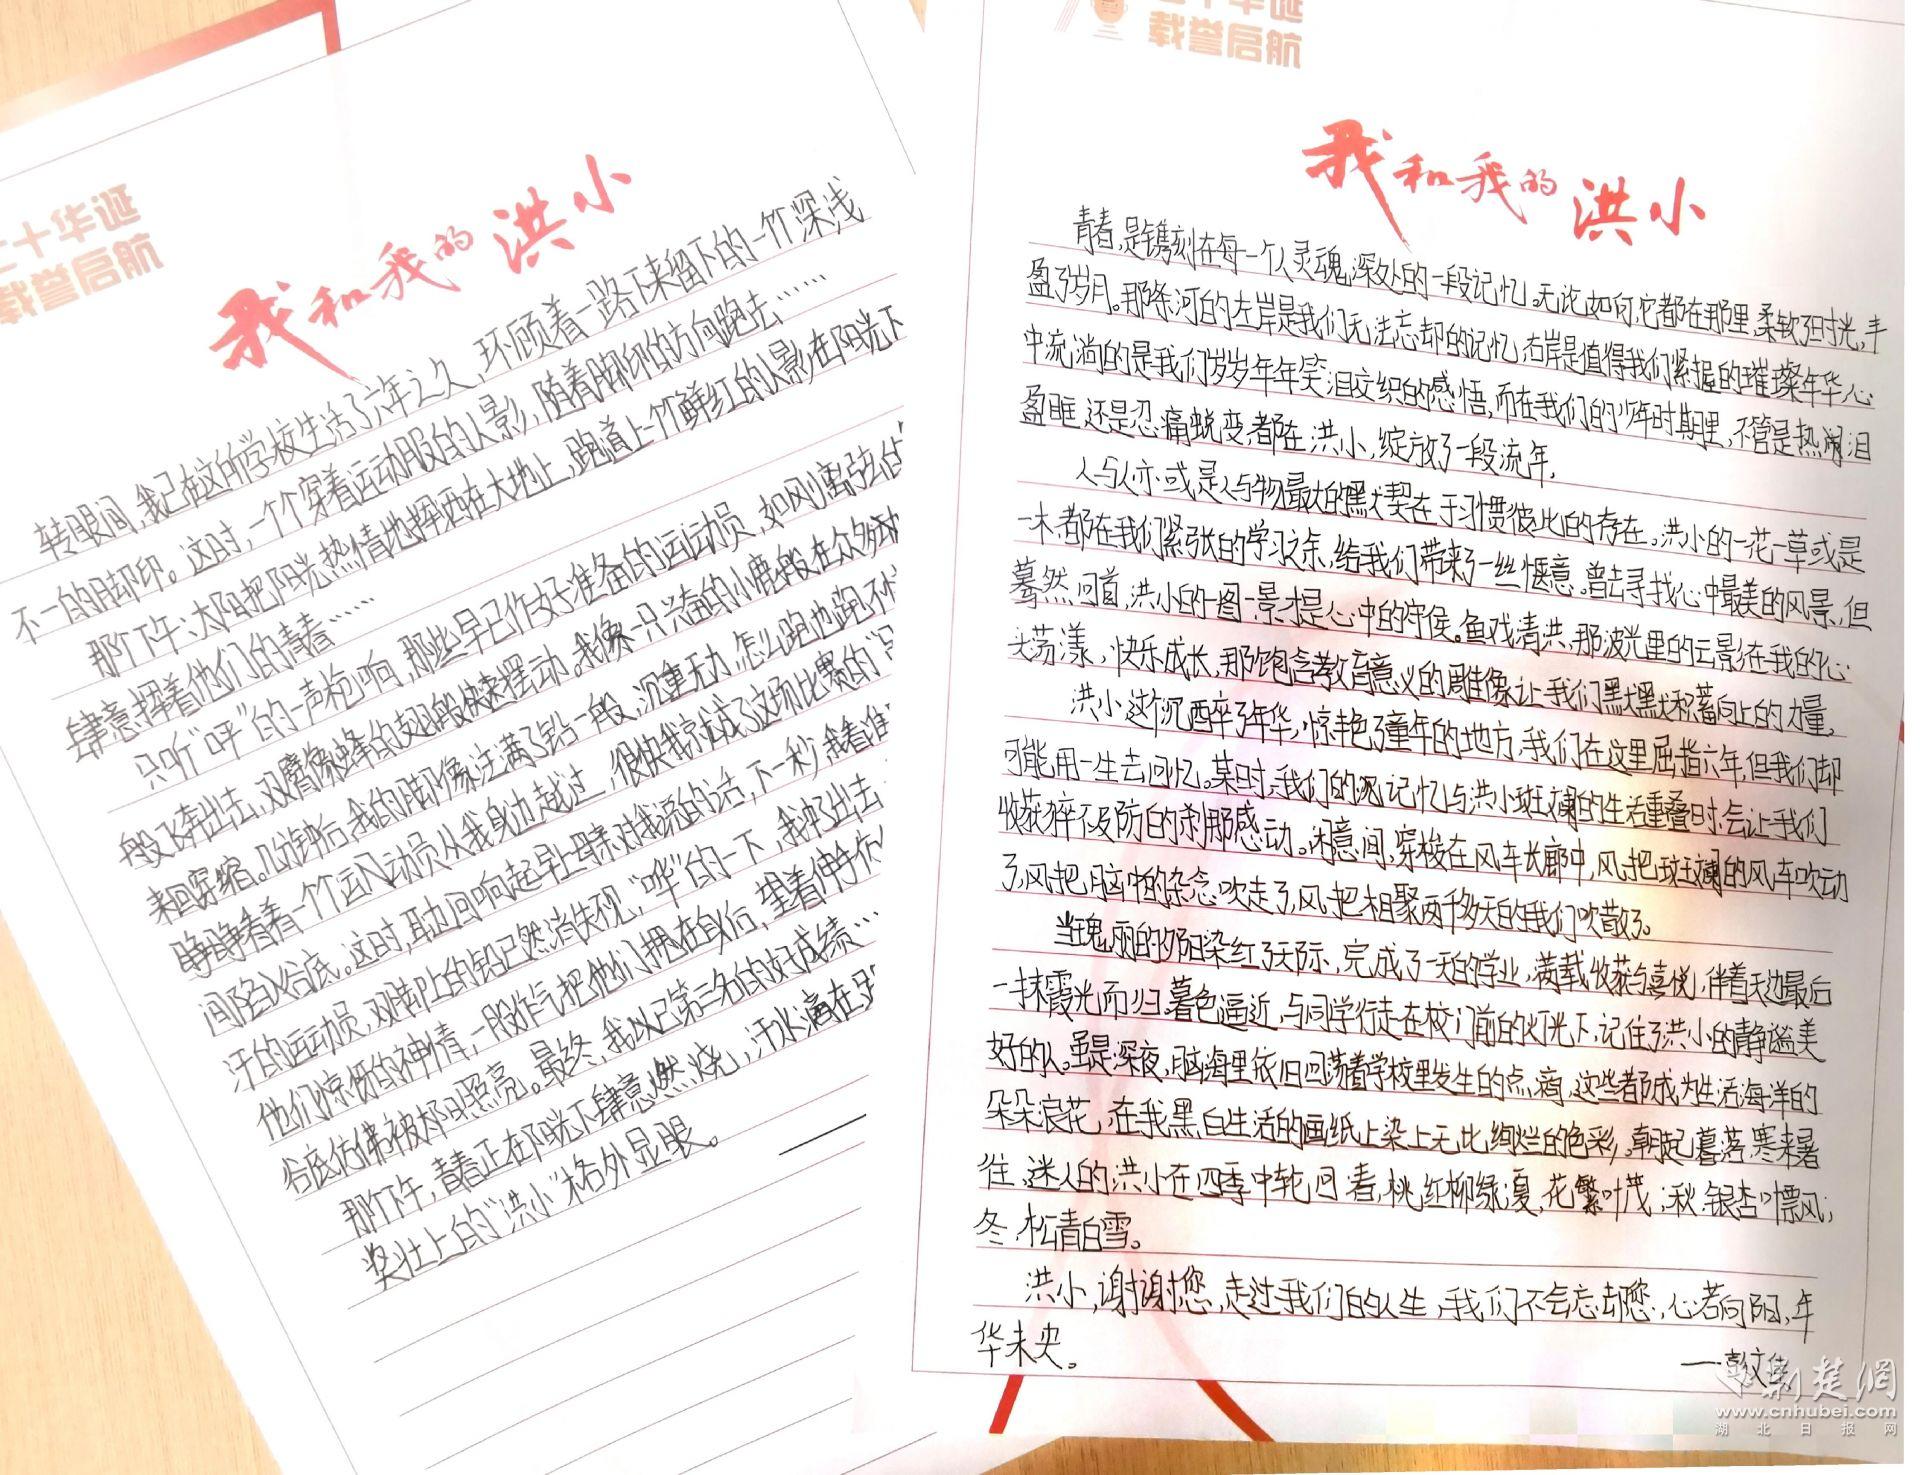 十华诞
载誉启航
我和我的洪小
转眼间,我已在这所学校生活了六年之久,环顾着一路下来留下的一个个深浅
不一的脚印。这时,一个个穿着运动服的人影,随着脚印的方向跑去……
那个下午,太阳把阳光热情地挥洒在大地上,跑道上一个个鲜红的人影在阳光下
肆意挥着他们的青春……
只听“呯”的一声枪响,那些早已作好准备的运动员,如刚离弦的
般飞奔出去,双臂像蜜蜂的翅膀般快速摆动。我像一只兴奋的小鹿般在众多
来回穿缩。几分钟后,我的脚像注满了铅一般,沉重无力,怎么跑也跑不
睁睁看着一个个运动员从我身边越过,很快我就成了这场比赛的“
间陷入谷底。这时,耳边回响起早上母亲对我说的话,下一秒,我看准
汗的运动员,双脚上的铅已然消失不见,“哗”的一下,我冲了出去
他们惊讶的神情,一股作气把他们甩在身后,望着伸手
谷底仿佛被一一照亮。最终,我以第三名的好成绩…
那个下午,青春正在阳光下肆意燃烧,汗水滴在
奖壮上的“洪小”格外显眼。
十华诞
载誉启航
我和我的洪小
青春,是镌刻在每一个人灵魂深处的一段记忆。无论如何,它都在那里,柔软了时光,丰
盈了岁月。那条河的左岸是我们无法忘却的记忆,右岸是值得我们紧握的璀璨年华,心
中流淌的是我们岁岁年年笑泪交织的感悟,而在我们的少年时期里,不管是热闹泪
盈眶,还是忍痛蜕变,都在洪小,绽放了一段流年。
人与人亦或是人与物最大的默契在于习惯彼此的存在。洪小的一花一草或是
一木,都在我们紧张的学习之余,给我们带来了一丝惬意。曾去寻找心中最美的风景,但
蓦然回首,洪小的一图一景才是心中的守候。鱼戏清洪,那波光里的云影在我的心
头荡漾,快乐成长,那饱含教育意义的雕像让我们默默积蓄向上的力量。
洪小,这个沉醉了年华,惊艳了童年的地方,我们在这里屈指六年,但我们却
可能用一生去回忆。某日时,我们的记忆与洪小斑斓的生活重叠时,会让我们
收获猝不及防的刹那感动。闲意间,穿梭在风车长廊中,风把斑斓的风车吹动
了,风把脑中的杂念吹走了,风把相聚两千多天的我们吹散了。
当瑰丽的夕阳染红了天际,完成了一天的学业,满载收获与喜悦,伴着天边最后
一抹霞光而归。暮色逼近,与同学行走在校门前的灯光下,记住了洪小的静谧美
好的人。虽是深夜,脑海里依旧回荡着学校里发生的点滴,这些都成为生活海洋的
朵朵浪花,在我黑白生活的画纸上染上无比绚烂的色彩。朝起暮落,寒来暑
往,迷人的洪小在四季中轮回:春,桃红柳绿;夏,花繁叶茂;秋,银杏飘风;
冬,松青白雪。
洪小,谢谢您,走过我们的人生,我们不会忘却您,心若向阳,年
华未央。
——彭文佳
荆楚网
www.cnhubei.com
湖北日报网